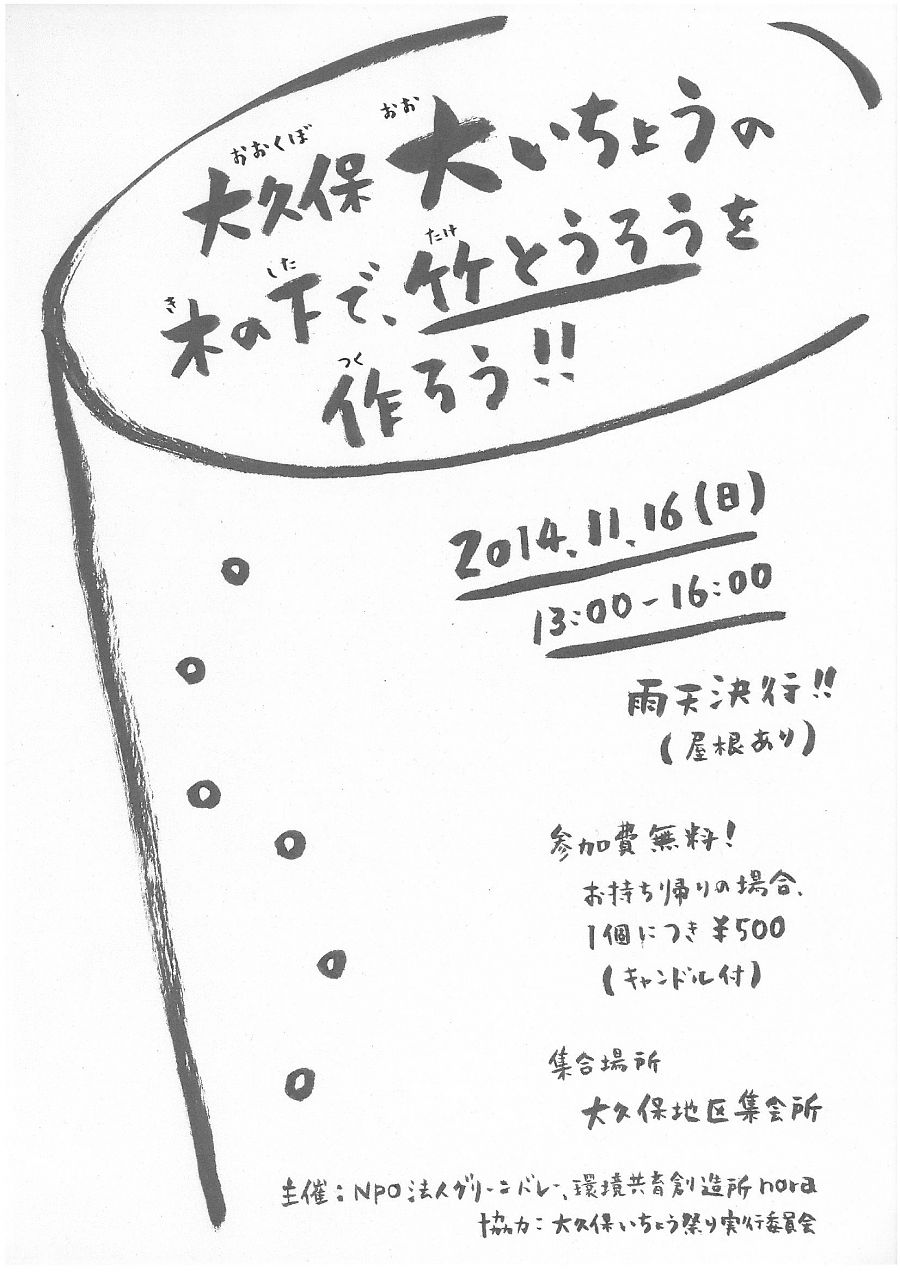 おおくぼ おお
大久保 大いちょうの
き した たけ
木の下で、竹とうろうを
つく
作ろう!!
2014.11.16(日)
13:00-16:00
雨天決行!!
(屋根あり)
参加費無料!
お持ち帰りの場合、
1個につき¥500
(キャンドル付)
集合場所
大久保地区集会所
主催:NPO法人グリーンバレー、環境共育創造所nora
協力:大久保いちょう祭り実行委員会